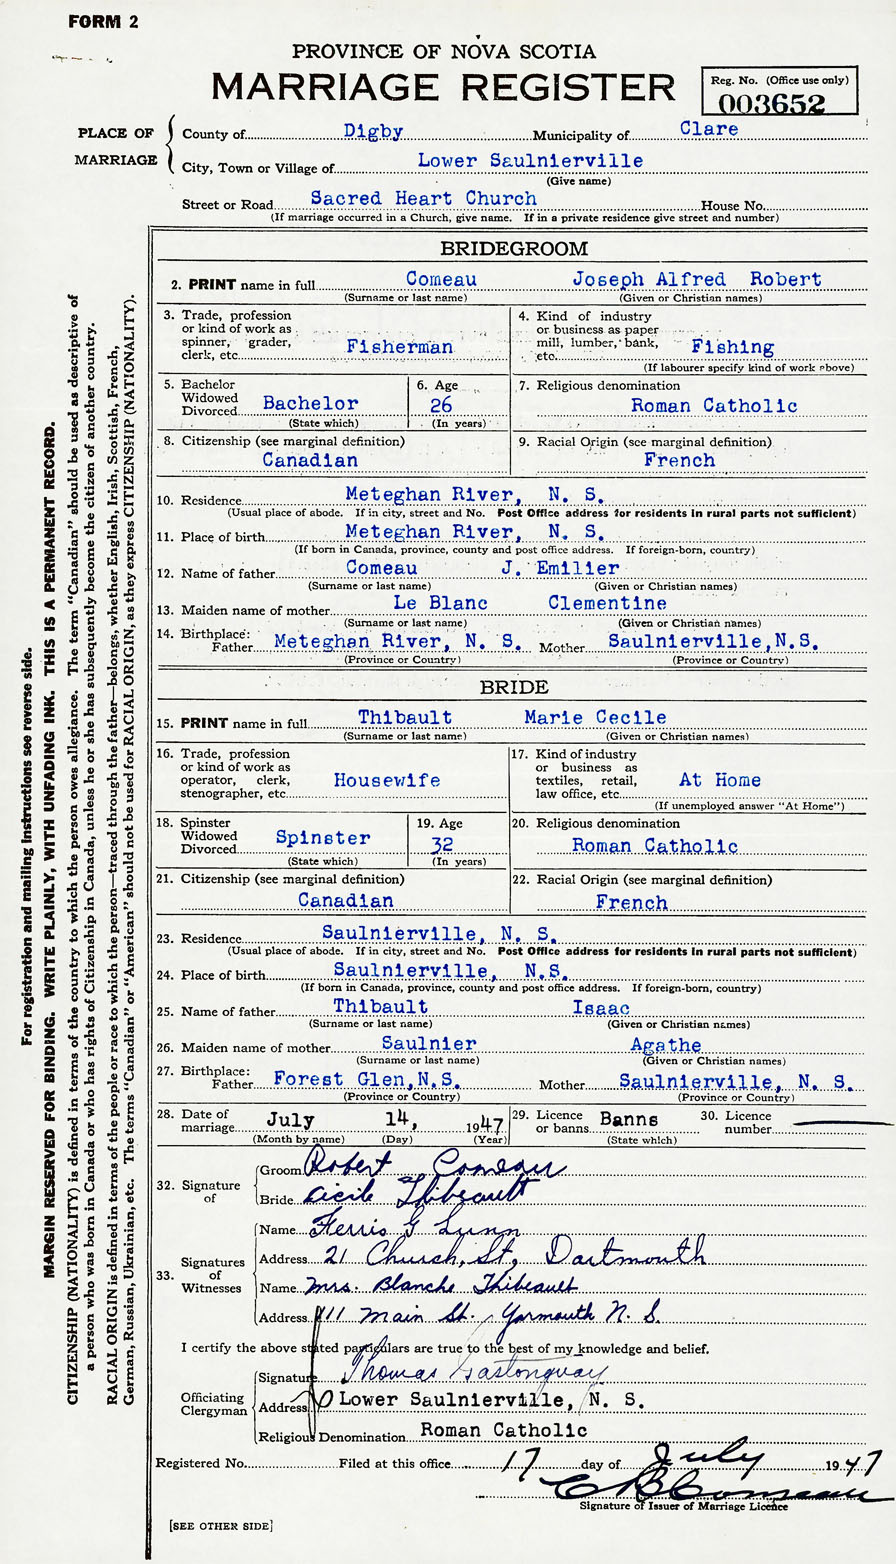 FORM 2
PROVINCE OF NOVA SCOTIA
MARRIAGE REGISTER
Reg. No. (Office use only)
003652
PLACE OF MARRIAGE
County of Digby Municipality of Clare
City, Town or Village of Lower Saulnierville
(Give name)
Street or Road Sacred Heart Church House No.
(If marriage occurred in a Church, give name. If in a private residence give street and number)
BRIDEGROOM
2. PRINT name in full Comeau Joseph Alfred Robert
(Surname or last name) (Given or Christian names)
3. Trade, profession or kind of work as spinner, grader, clerk, etc. Fisherman
4. Kind of industry or business as paper mill, lumber, bank, etc. Fishing
(If labourer specify kind of work above)
5. Bachelor Widowed Divorced Bachelor
(State which)
6. Age 26
(In years)
7. Religious denomination
Roman Catholic
8. Citizenship (see marginal definition)
Canadian
9. Racial Origin (see marginal definition)
French
10. Residence Meteghan River, N. S.
(Usual place of abode. If in city, street and No. Post Office address for residents in rural parts not sufficient)
11. Place of birth Meteghan River, N. S.
(If born in Canada, province, county and post office address. If foreign-born, country)
12. Name of father Comeau J. Emilier
(Surname or last name) (Given or Christian names)
13. Maiden name of mother Le Blanc Clementine
(Surname or last name) (Given or Christian names)
14. Birthplace: Father Meteghan River, N. S. Mother Saulnierville, N.S.
(Province or Country) (Province or Country)
BRIDE
15. PRINT name in full Thibault Marie Cecile
(Surname or last name) (Given or Christian names)
16. Trade, profession or kind of work as operator, clerk, stenographer, etc. Housewife
17. Kind of industry or business as textiles, retail, law office, etc. At Home
(If unemployed answer "At Home")
18. Spinster Widowed Divorced Spinster
(State which)
19. Age 32
(In years)
20. Religious denomination
Roman Catholic
21. Citizenship (see marginal definition)
Canadian
22. Racial Origin (see marginal definition)
French
23. Residence Saulnierville, N. S.
(Usual place of abode. If in city, street and No. Post Office address for residents in rural parts not sufficient)
24. Place of birth Saulnierville, N.S.
(If born in Canada, province, county and post office address. If foreign-born, country)
25. Name of father Thibault Isaac
(Surname or last name) (Given or Christian names)
26. Maiden name of mother Saulnier Agathe
(Surname or last name) (Given or Christian names)
27. Birthplace: Father Forest Glen, N.S. Mother Saulnierville, N. S.
(Province or Country) (Province or Country)
28. Date of marriage July 14, 1947
(Month by name) (Day) (Year)
29. Licence or banns Banns
(State which)
30. Licence number
32. Signature of
Groom Robert Comeau
Bride Cicile Thibeault
33. Signatures of Witnesses
Name Ferris G Lunn
Address 21 Church, St, Dartmouth
Name Mrs. Blanche Thibeault
Address 111 Main St. Yarmouth N. S.
I certify the above stated particulars are true to the best of my knowledge and belief.
Officiating Clergyman
Signature Thomas Gastonguay
Address Lower Saulnierville, N. S.
Religious Denomination Roman Catholic
Registered No. Filed at this office 17 day of July 1947
Comeau
Signature of Issuer of Marriage Licence
[SEE OTHER SIDE]
For registration and mailing instructions see reverse side.
MARGIN RESERVED FOR BINDING. WRITE PLAINLY, WITH UNFADING INK. THIS IS A PERMANENT RECORD.
CITIZENSHIP (NATIONALITY) is defined in terms of the country to which the person owes allegiance. The term "Canadian" should be used as descriptive of
a person who was born in Canada or who has rights of Citizenship in Canada, unless he or she has subsequently become the citizen of another country.
RACIAL ORIGIN is defined in terms of the people or race to which the person—traced through the father—belongs, whether English, Irish, Scottish, French,
German, Russian, Ukrainian, etc. The terms "Canadian" or "American" should not be used for RACIAL ORIGIN, as they express CITIZENSHIP (NATIONALITY).